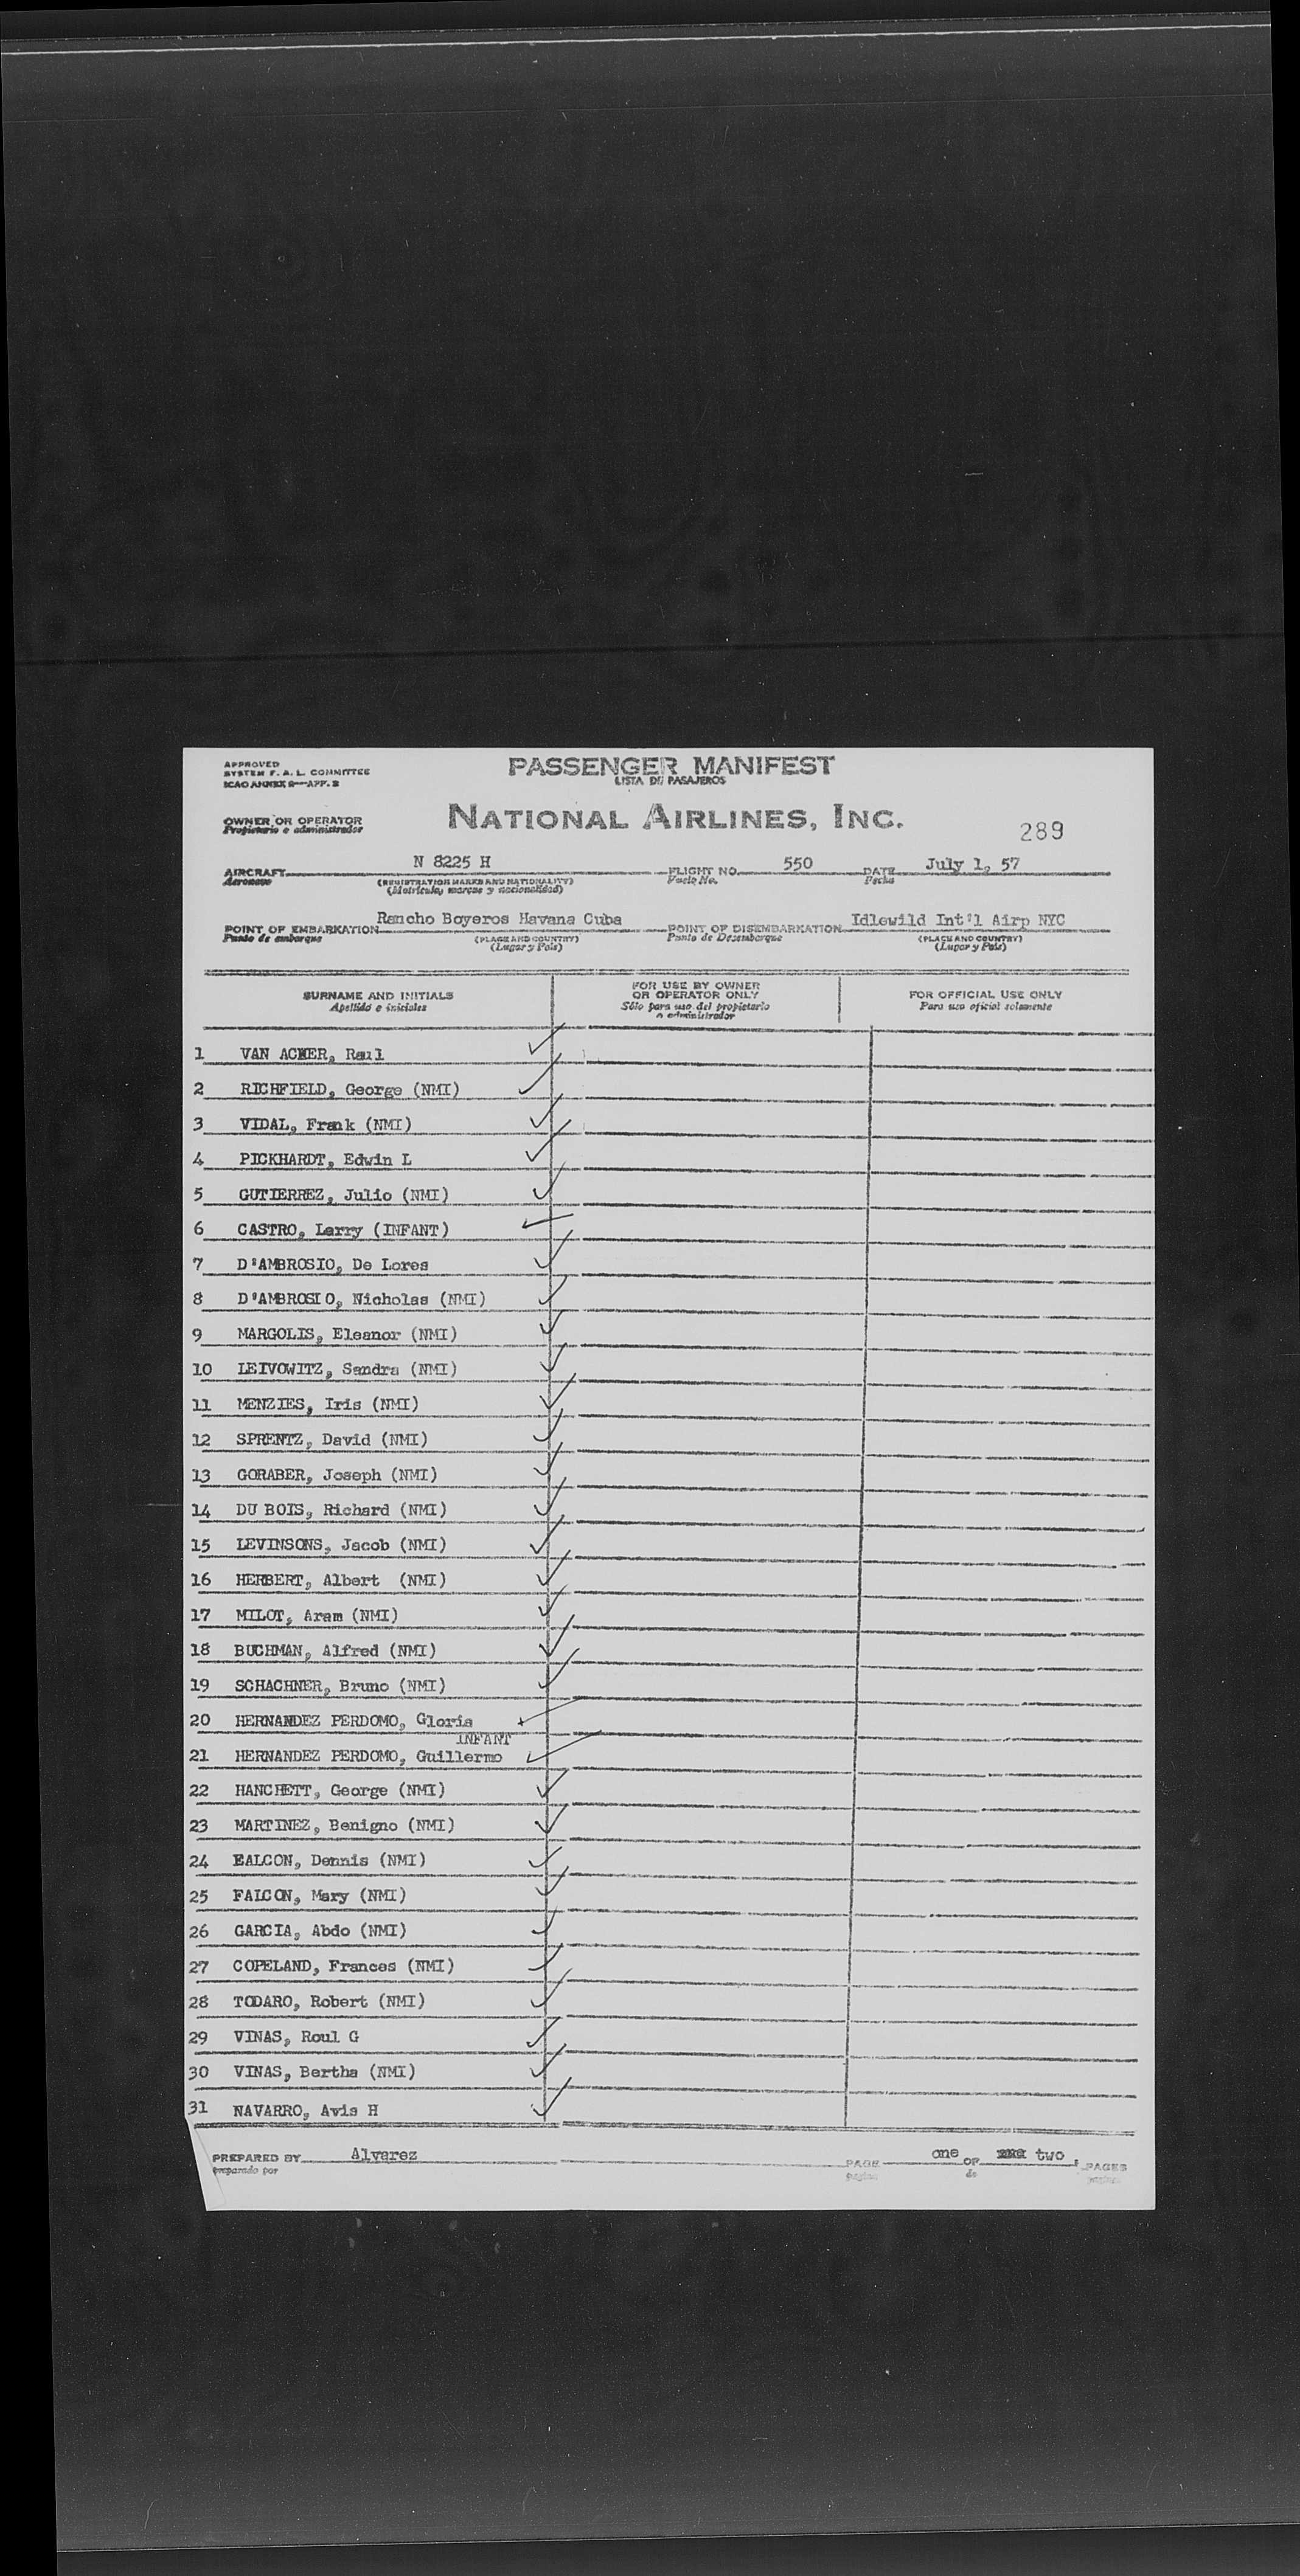 APPROVED
SYSTEM F. A. L. COMMITTEE
ICAO ANNEX 9—APP. 2
PASSENGER MANIFEST
LISTA DE PASAJEROS
OWNER OR OPERATOR
Propietario o administrador
NATIONAL AIRLINES, INC.
289
AIRCRAFT N 8225 H FLIGHT NO. 550 DATE July 1, 57
Aeronave (REGISTRATION MARKS AND NATIONALITY) Vuelo No. Fecha
(Matrícula, marcas y nacionalidad)
POINT OF EMBARKATION Rancho Boyeros Havana Cuba POINT OF DISEMBARKATION Idlewild Int'l Airp NYC
Punto de embarque (PLACE AND COUNTRY) Punto de Desembarque (PLACE AND COUNTRY)
(Lugar y País) (Lugar y País)
SURNAME AND INITIALS
Apellido e iniciales
FOR USE BY OWNER
OR OPERATOR ONLY
Sólo para uso del propietario
o administrador
FOR OFFICIAL USE ONLY
Para uso oficial solamente
1 VAN ACKER, Raul
2 RICHFIELD, George (NMI)
3 VIDAL, Frank (NMI)
4 PICKHARDT, Edwin L
5 GUTIERREZ, Julio (NMI)
6 CASTRO, Larry (INFANT)
7 D'AMBROSIO, De Lores
8 D'AMBROSIO, Nicholas (NMI)
9 MARGOLIS, Eleanor (NMI)
10 LEIVOWITZ, Sandra (NMI)
11 MENZIES, Iris (NMI)
12 SPRENTZ, David (NMI)
13 GORABER, Joseph (NMI)
14 DU BOIS, Richard (NMI)
15 LEVINSONS, Jacob (NMI)
16 HERBERT, Albert (NMI)
17 MILOT, Aram (NMI)
18 BUCHMAN, Alfred (NMI)
19 SCHACHNER, Bruno (NMI)
20 HERNANDEZ PERDOMO, Gloria
INFANT
21 HERNANDEZ PERDOMO, Guillermo
22 HANCHETT, George (NMI)
23 MARTINEZ, Benigno (NMI)
24 BALCON, Dennis (NMI)
25 FALCON, Mary (NMI)
26 GARCIA, Abdo (NMI)
27 COPELAND, Frances (NMI)
28 TODARO, Robert (NMI)
29 VINAS, Roul G
30 VINAS, Bertha (NMI)
31 NAVARRO, Avis H
PREPARED BY Alvarez PAGE one OF two PAGES
preparado por página de páginas